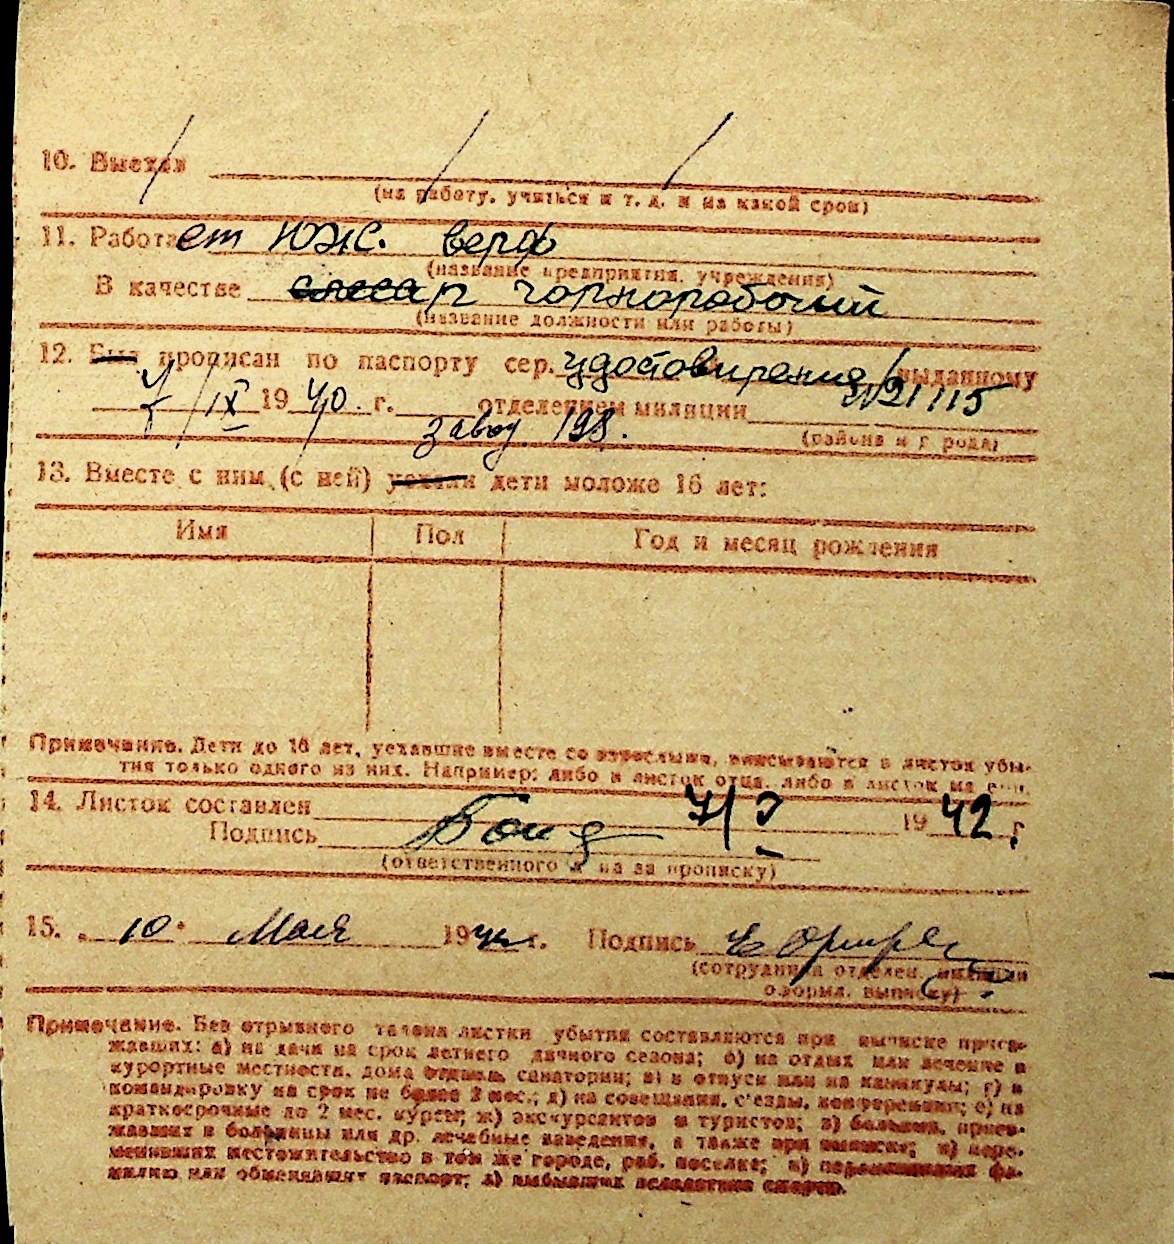 10. Выехал
(на работу, учиться и т. д. и на какой срок)
11. Работает Юж. верф
(название предприятия, учреждения)
В качестве слесар чорнорабочий
(название должности или работы)
12. Был прописан по паспорту сер. удостовирения выданному
IX 1940 г. отделением милиции №21115
завод 198. (района и города)
13. Вместе с ним (с ней) уехали дети моложе 16 лет:
Имя Пол Год и месяц рождения
Примечание. Дети до 16 лет, уехавшие вместе со взрослыми, вписываются в листок убы-
тия только одного из них. Например: либо в листок отца, либо в листок матери.
14. Листок составлен 1942 г.
Подпись
(ответственного лица за прописку)
15. „10" Мая 1942 г. Подпись
(сотрудника отделен. милиции
оформл. выписку)
Примечание. Без отрывного талона листки убытия составляются при выписке приез-
жавших: а) на дачи на срок летнего дачного сезона; б) на отдых или лечение в
курортные местности, дома отдыха, санатории; в) в отпуск или на каникулы; г) в
командировку на срок не более 2 мес.; д) на совещания, с'езды, конференции; е) на
краткосрочные до 2 мес. курсы; ж) экскурсантов и туристов; з) больных, приез-
жавших в больницы или др. лечебные заведения, а также при выписке; и) пере-
менивших местожительство в том же городе, раб. поселке; к) переменивших фа-
милию или обменявших паспорт; л) выбывших вследствие смерти.